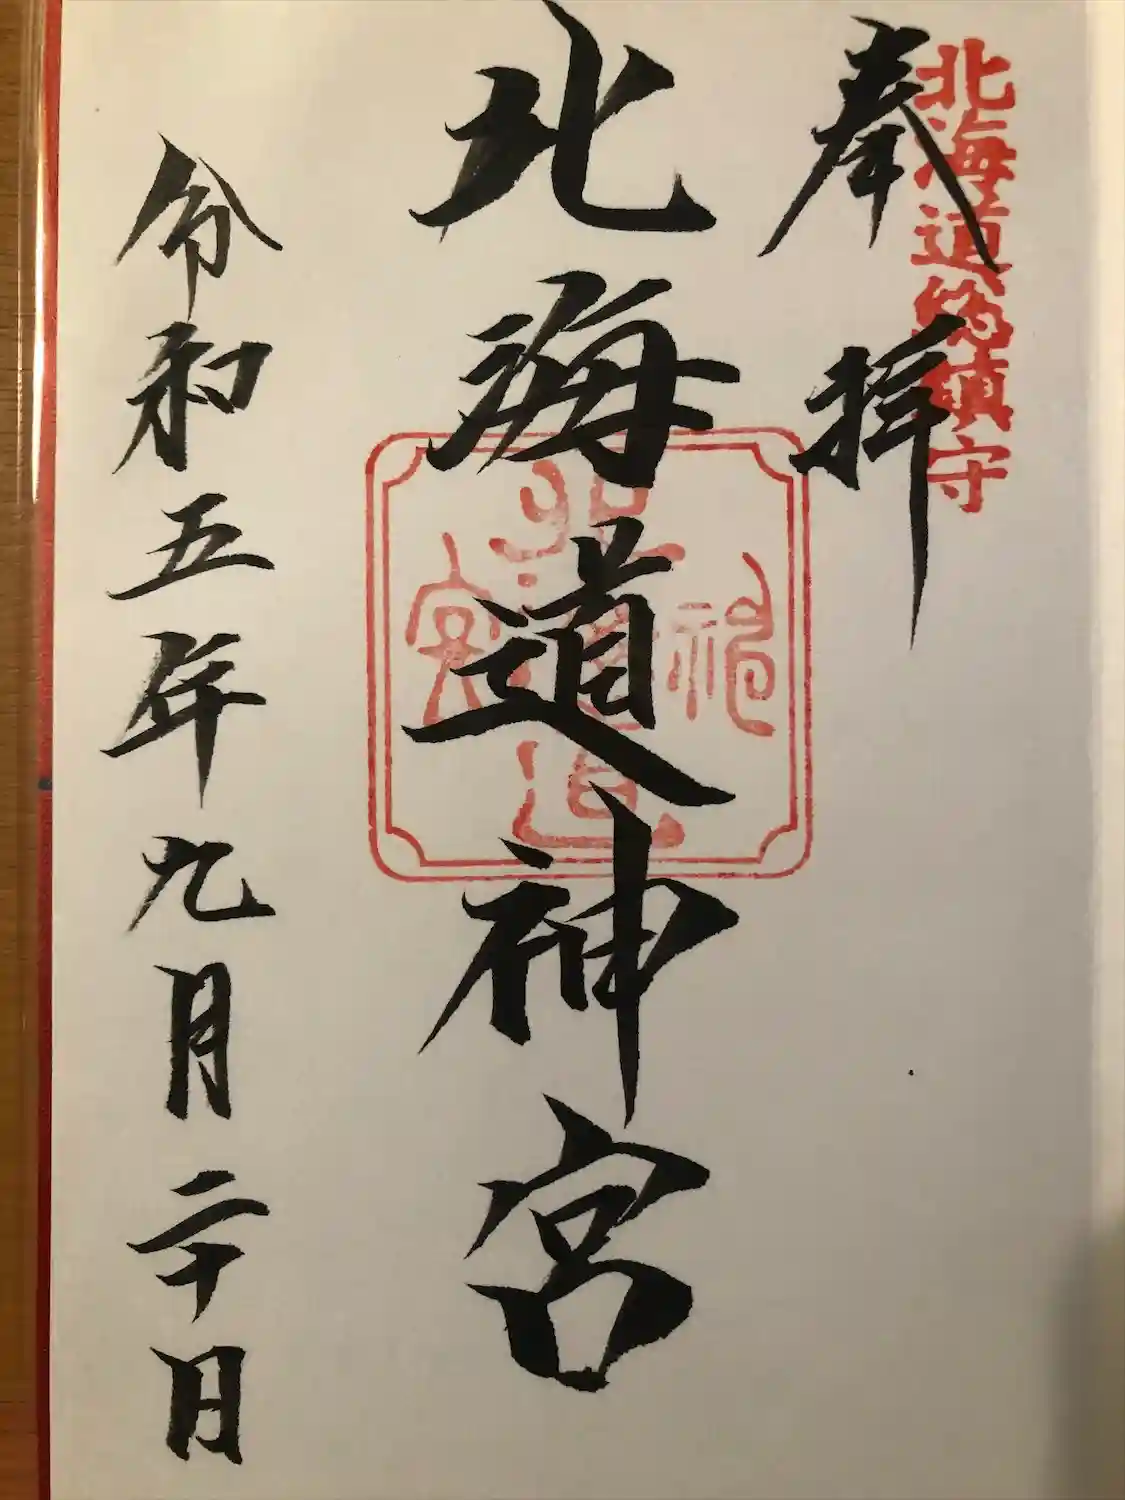 北海道総鎮守
奉拝
北海道神宮
北海道神宮
令和五年九月二十日